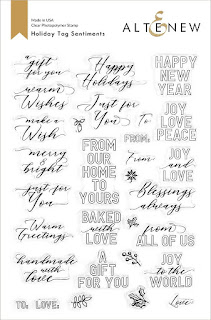 Made in USA
Clear Photopolymer Stamp
Holiday Tag Sentiments
ALTENEW
a
gift
for you
warm
Wishes
make a
Wish
merry
&
bright
just for
You
Warm
Greetings
handmade
with
love
TO:
LOVE:
Happy
Holidays
Just for
You
FROM
OUR
HOME
TO
YOURS
BAKED
with
LOVE
A
GIFT
FOR YOU
HAPPY
NEW
YEAR
To
FROM:
JOY
LOVE
PEACE
From
JOY
and
LOVE
Blessings
always
from
ALL OF US
JOY
to the
WORLD
Love